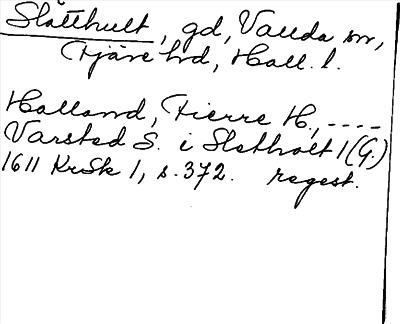 Slätthult, gd, Valda sn,
Fjäre hd, Hall. l.
Halland, Fierre H., ----
Varsted S. i Sletholt 1 (G.)
1611 KrSk 1, s. 372. regest.